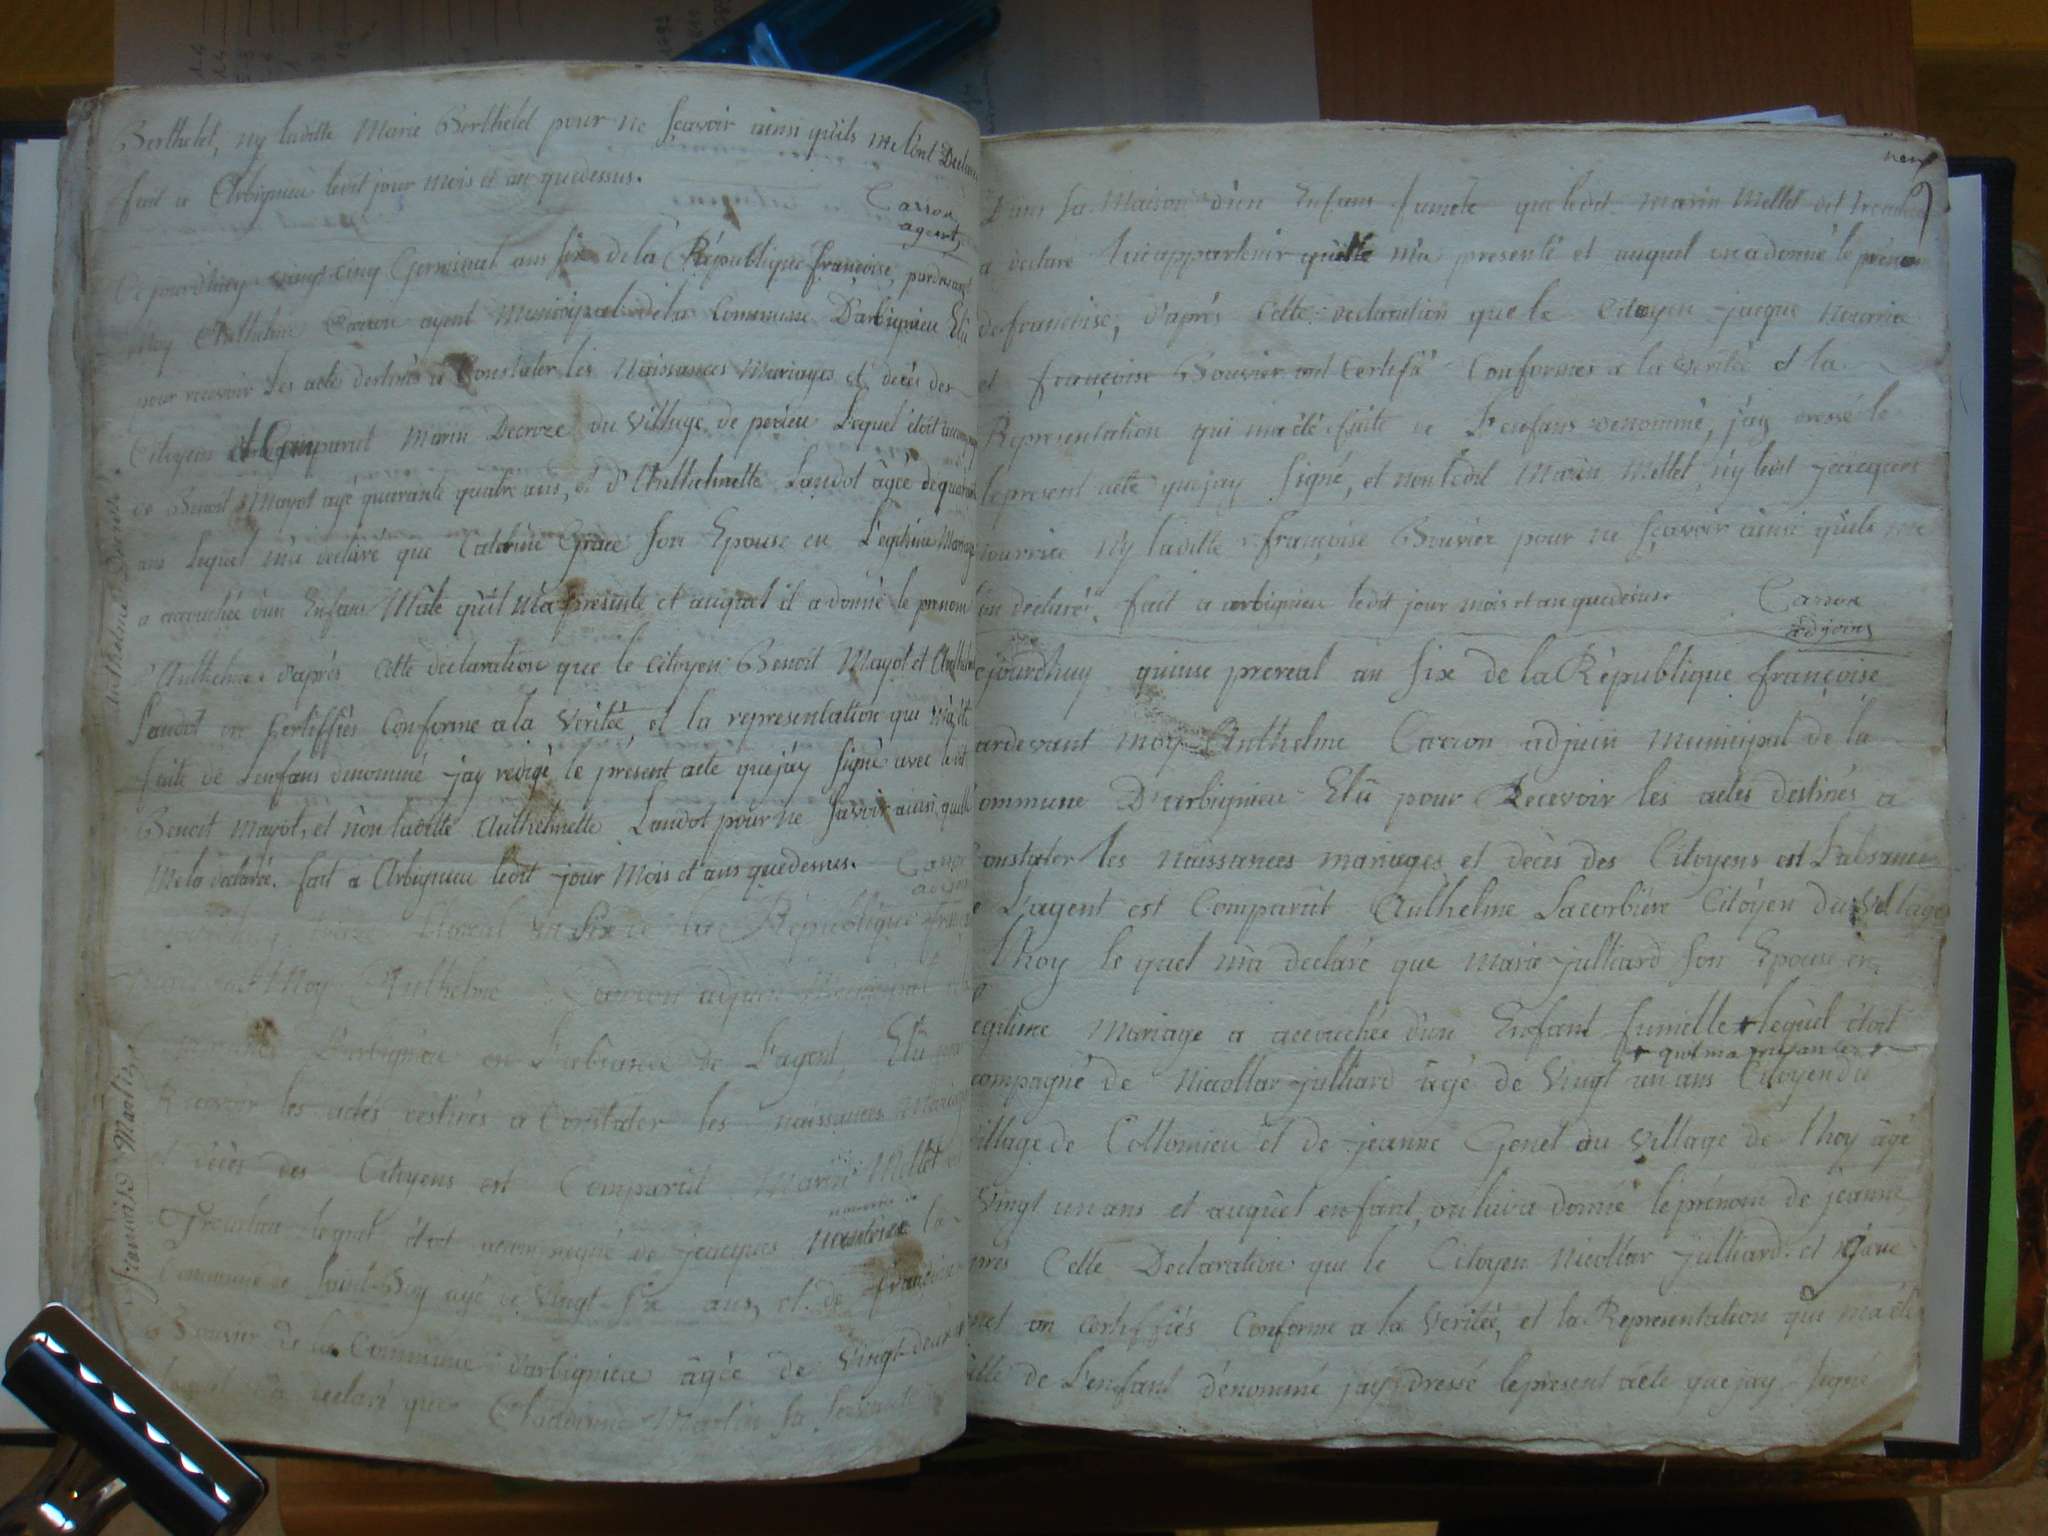 Berthelet, ny laditte Marie Berthelet pour ne sçavoir ainsi quils me lont Declaré
fait a Arbignieu ledit jour mois et an quedessus.
Carron
agent
Ce jourdhuy vingt cinq Germinal ans six de la République françoise, pardevant
Moy Anthelme Carron agent Municipal de la Commune D'arbignieu Elû
pour recevoir les acte destinés a Constater les Naissances Mariages et decès des
Citoyens est Comparut Marin Decroze du Village de perieu Lequel étoit
de Benoit Mayot agé quarante quatre ans, et d'Anthelmette Landot âgée de
ans lequel m'a declaré que Catérine Grace son Epouse en Légitime Mariage
a accouchée d'un Enfans Mâle qu'il m'a présenté et auquel il a donné le prenom
d'Anthelme d'après cette declaration que le citoyen Benoit Mayot et
Landot on Certiffiés Conforme a la Verité, et la representation qui m'a été
faite de l'enfans dénommé jay redigé le présent acte que jay signé avec ledit
Benoit Mayot, et non laditte Anthelmette Landot pour ne savoir ainsi quelle
Me la declarée. fait a Arbignieu ledit jour Mois et ans quedessus.
an six de la République
Moy Anthelme Carron adjuin Municipal
D'arbignieu en L'absance de L'agent, Elû pour
Recevoir les actes destinés a Constater les naissances Mariages
et décès des Citoyens est Comparut Marin Mellet
Treuilan lequel étoit accompagné de jacques nourrice la
Commune de Saint Boy agé de Vingt six ans, et de françoise
Bouvier de la Commune d'arbignieu agée de Vingt deux
lequel m'a declaré que Claudine Martin sa servante
anthelme Decroze
françoise Martin
neuf
9
Dans sa Maison d'un Enfans fumele que ledit Marin Mellet dit
a declaré lui appartenir qu'ille m'a presenté et auquel on a donné le prénom
de françoise, d'après Cette declaration que le Citoyen jacque nourrice
et françoise Bouvier ont Certifié Conformes a la verité et la
Representation qui m'a été faite de L'enfans denommé, j'ay dressé le
le present acte que jay signé, et non ledit Marin Mellet, n'y ledit jacques
nourrice N'y laditte françoise Bouvier pour ne sçavoir ainsi quils me
lon declaré. fait a arbignieu ledit jour mois et an quedessus
Carron
adjoint
cejourdhuy quinse prereal an six de la République françoise
ardevant moy Anthelme Carron adjuin municipal de la
ommune D'arbignieu Elû pour Recevoir les actes destinés a
onstater les naissances mariages et décès des Citoyens est L'absance
e L'agent est Comparût Anthelme Lacorbiere Citoyen du Village
thoy le quel m'a declaré que Marie julliard son Epouse en
egitime Mariage a accouchée d'un Enfant fumelle + lequel étoit
+ quil ma presantee +
compagné de Nicollar julliard agé de Vingt un ans Citoyen du
illage de Collomieu et de jeanne Genet du Village de thoy âgé
Vingt un ans et auquel enfant, on luiva donné le prénom de jeanne,
prés Cette Declaration que le Citoyen Nicollar julliard et jeane
net on certiffiés Conforme a la Verité, et la Representation qui m'a été
aitte de L'enfant dénommé jay dressé le present acte que jay signé